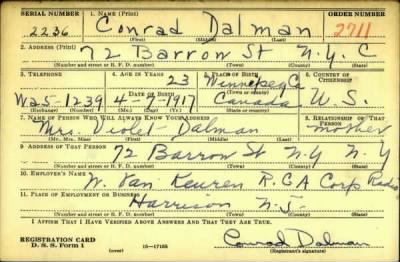 SERIAL NUMBER 1. NAME (Print) ORDER NUMBER
2236 Conrad Dalman 2711
(First) (Middle) (Last)
2. ADDRESS (Print)
72 Barrow St N.Y. C
(Number and street or R. F. D. number) (Town) (County) (State)
3. TELEPHONE 4. AGE IN YEARS 5. PLACE OF BIRTH 6. COUNTRY OF CITIZENSHIP
23 Winnepeg Ca
(Town or county)
DATE OF BIRTH
Wa 5-1239 4-7-1917 Canada U.S.
(Exchange) (Number) (Mo.) (Day) (Yr.) (State or country)
7. NAME OF PERSON WHO WILL ALWAYS KNOW YOUR ADDRESS 8. RELATIONSHIP OF THAT PERSON
Mrs. Violet Dalman mother
(Mr., Mrs., Miss) (First) (Middle) (Last)
9. ADDRESS OF THAT PERSON
72 Barrow St N.Y N.Y
(Number and street or R. F. D. number) (Town) (County) (State)
10. EMPLOYER'S NAME
W. Van Keuren R.C.A Corp Radio
11. PLACE OF EMPLOYMENT OR BUSINESS
Harrison N.J.
(Number and street or R. F. D. number) (Town) (County) (State)
I AFFIRM THAT I HAVE VERIFIED ABOVE ANSWERS AND THAT THEY ARE TRUE.
REGISTRATION CARD
D. S. S. Form 1 (over) 16-17105 Conrad Dalman
(Registrant's signature)